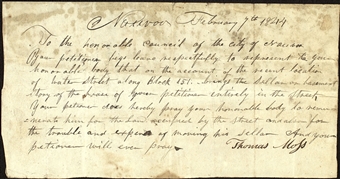 Nauvoo February 7th 1844
To the honorable Council of the City of Nauvoo
Your petitioner begs leave respectfully to represent to your
honorable body that on the account of the recent location
of water Street along Block 151. brings the cellar basement
story of the house of your petitioner entirely in the Street,
Your petitioner does hereby pray your honorable body to remun
erate him for the loss incurred by the street and also for
the trouble and expense of moving his sellar And your
petitioner will ever pray
Thomas Moss